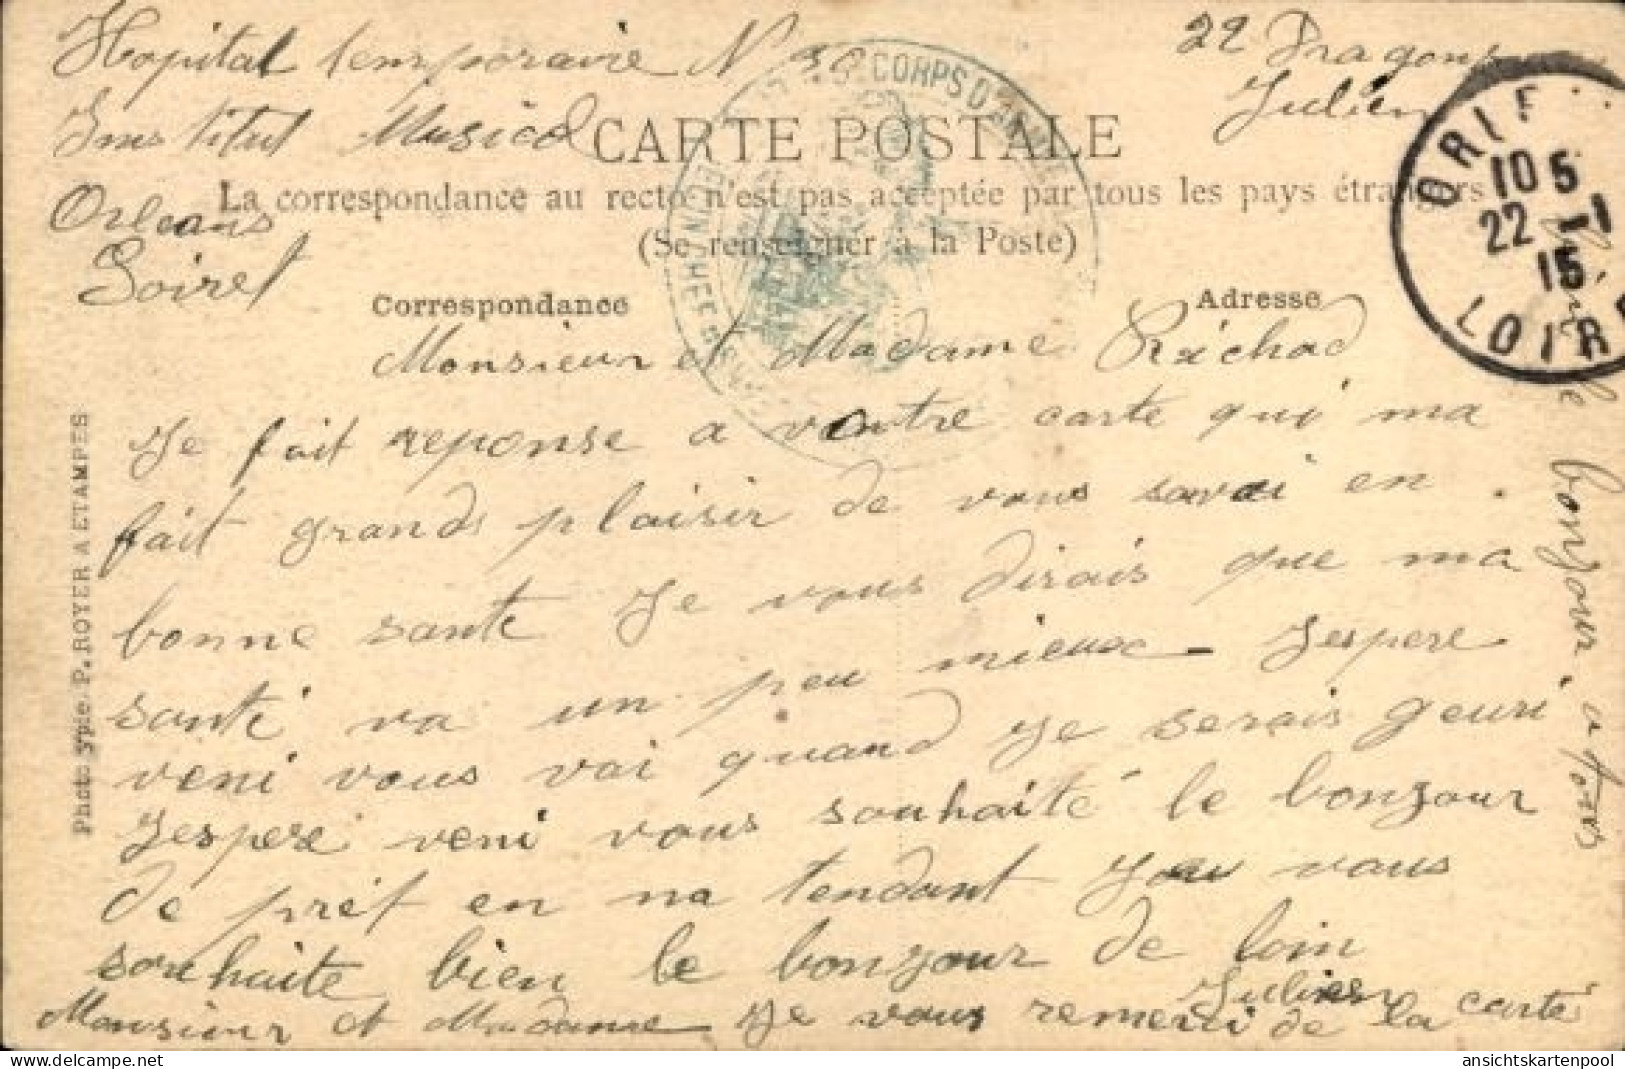 Hopital temporaire N° 30
Institut Musical
Orleans
Loiret
22 Dragons
Julien
CARTE POSTALE
La correspondance au recto n'est pas acceptée par tous les pays étrangers
(Se renseigner à la Poste)
Correspondance
Adresse
CORPS D'ARMÉE
MÉDECIN CHEF
10 5
22 -1
15
LOIRET
Photo typie P. ROYER A ETAMPES
Monsieur et Madame Réchad
Je fait reponse a vontre carte qui ma
fait grands plaisir de vous savoi en
bonne sante Je vous dirais que ma
santé va un peu mieux Jespere
veni vous vai quand Je serais gueuri
Jespere veni vous souhaité le bonjour
de prét en na tendant Jou vous
souhaite bien le bonjour de loin
Julien
Monsieur et Madame Je vous remerci de la carte
le bonjour a tous
ansichtskartenpool